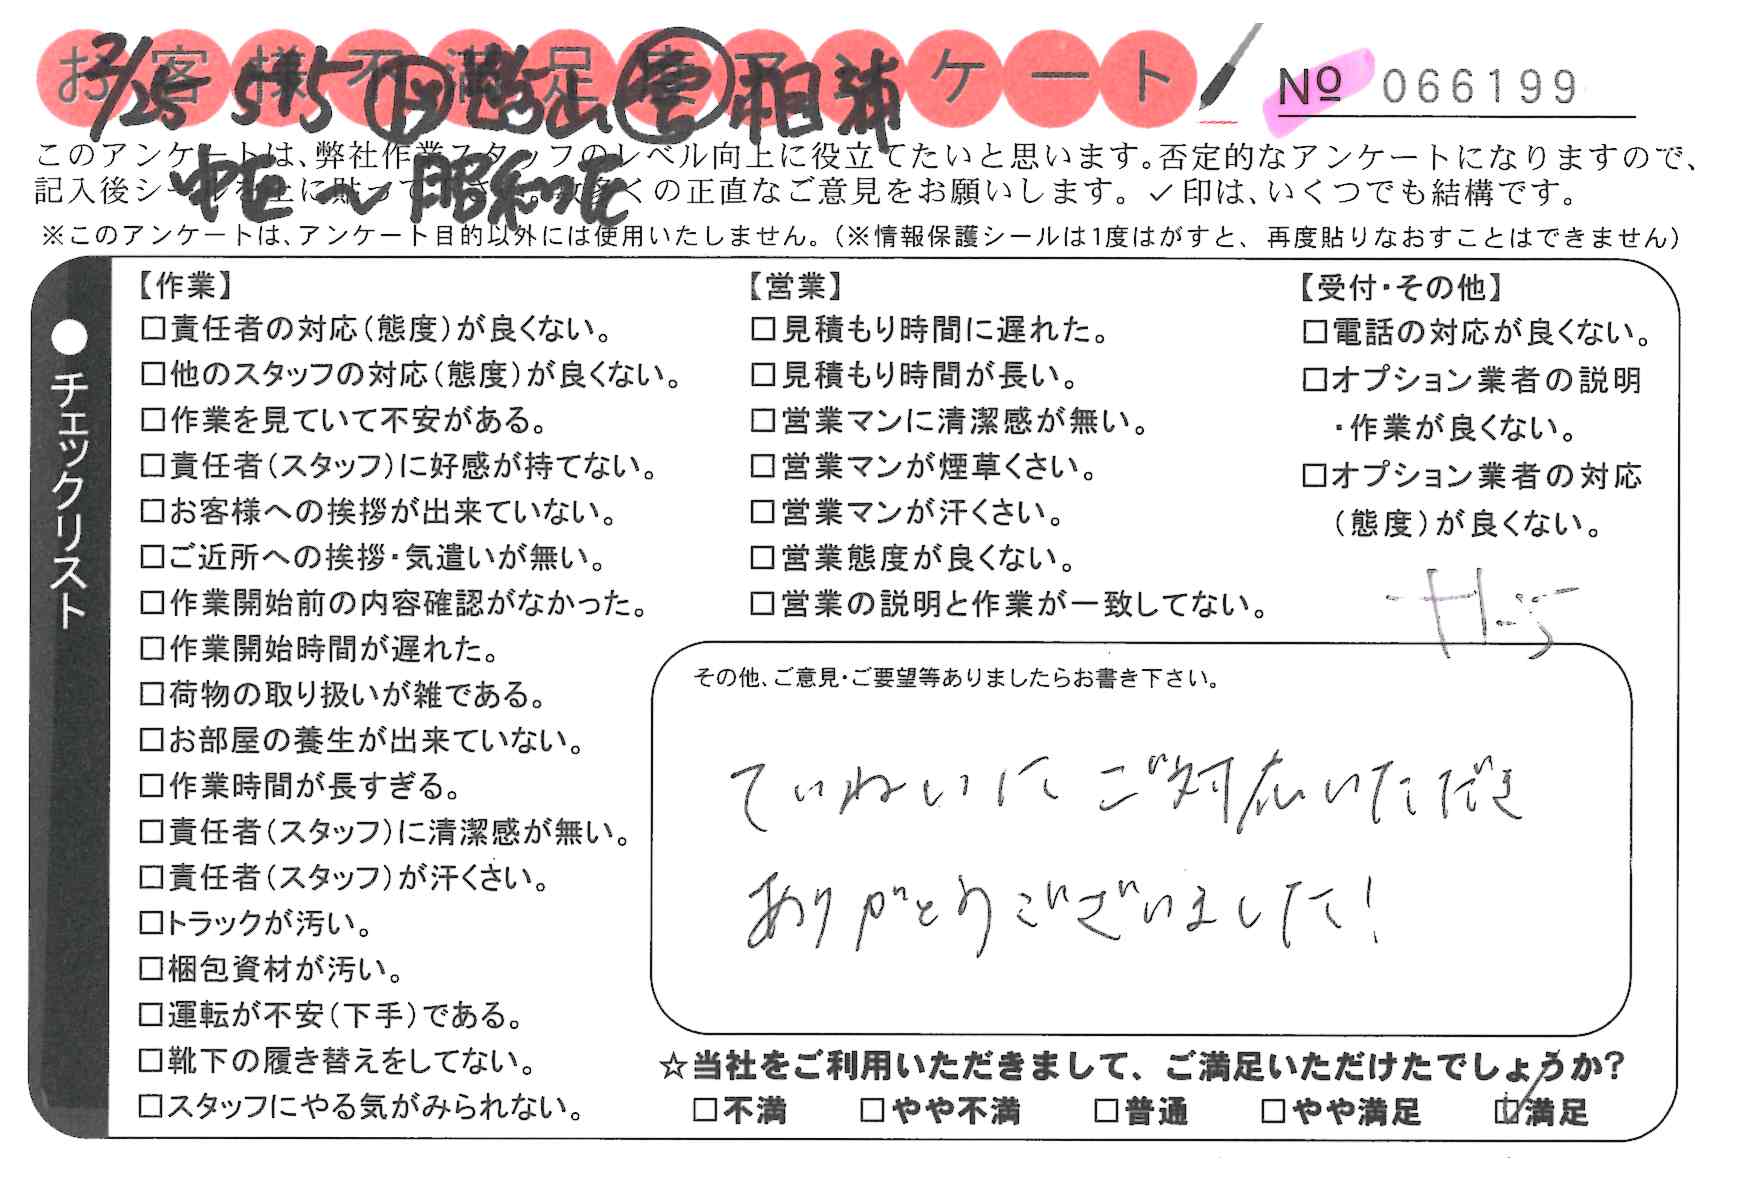 お客様不満足度アンケート
№ 066199
2/25
中区〜昭和区
このアンケートは、弊社作業スタッフのレベル向上に役立てたいと思います。否定的なアンケートになりますので、
記入後シールを上に貼って下さい。数多くの正直なご意見をお願いします。✓印は、いくつでも結構です。
※このアンケートは、アンケート目的以外には使用いたしません。（※情報保護シールは1度はがすと、再度貼りなおすことはできません）
●チェックリスト
【作業】
□責任者の対応（態度）が良くない。
□他のスタッフの対応（態度）が良くない。
□作業を見ていて不安がある。
□責任者（スタッフ）に好感が持てない。
□お客様への挨拶が出来ていない。
□ご近所への挨拶・気遣いが無い。
□作業開始前の内容確認がなかった。
□作業開始時間が遅れた。
□荷物の取り扱いが雑である。
□お部屋の養生が出来ていない。
□作業時間が長すぎる。
□責任者（スタッフ）に清潔感が無い。
□責任者（スタッフ）が汗くさい。
□トラックが汚い。
□梱包資材が汚い。
□運転が不安（下手）である。
□靴下の履き替えをしてない。
□スタッフにやる気がみられない。
【営業】
□見積もり時間に遅れた。
□見積もり時間が長い。
□営業マンに清潔感が無い。
□営業マンが煙草くさい。
□営業マンが汗くさい。
□営業態度が良くない。
□営業の説明と作業が一致してない。
【受付・その他】
□電話の対応が良くない。
□オプション業者の説明
・作業が良くない。
□オプション業者の対応
（態度）が良くない。
その他、ご意見・ご要望等ありましたらお書き下さい。
ていねいにご対応いただき
ありがとうございました！
☆当社をご利用いただきまして、ご満足いただけたでしょうか？
□不満 □やや不満 □普通 □やや満足 ☑満足